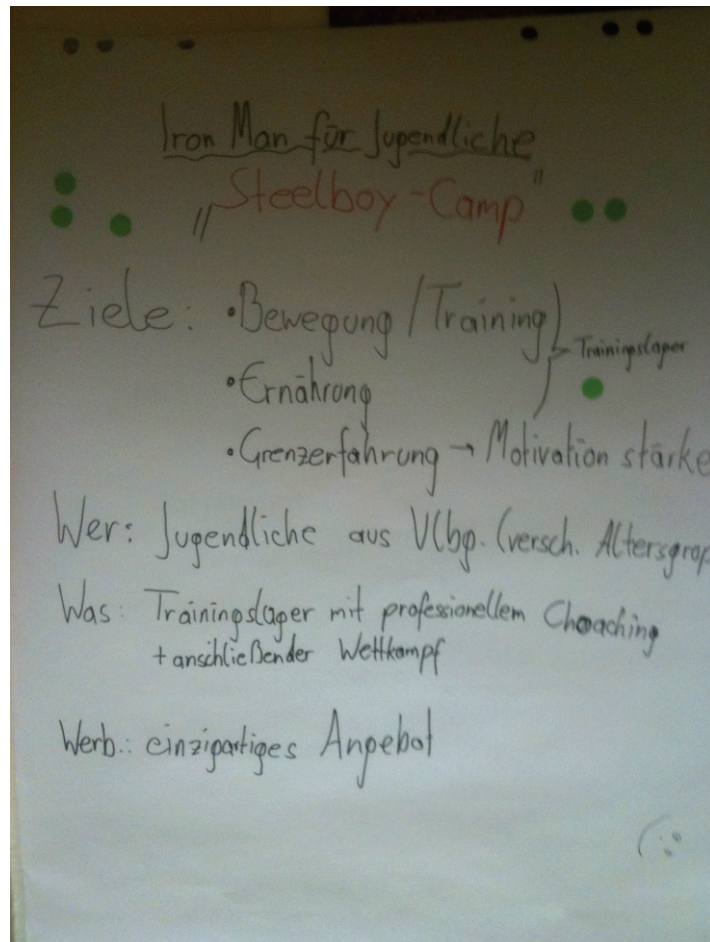 Iron Man für Jugendliche
"Steelboy-Camp"
Ziele: • Bewegung / Training
Trainingslager
• Ernährung
• Grenzerfahrung → Motivation stärke
Wer: Jugendliche aus Vlbg. (versch. Altersgrup
Was: Trainingslager mit professionellem Choaching
+ anschließender Wettkampf
Werb.: einzigartiges Angebot
(: